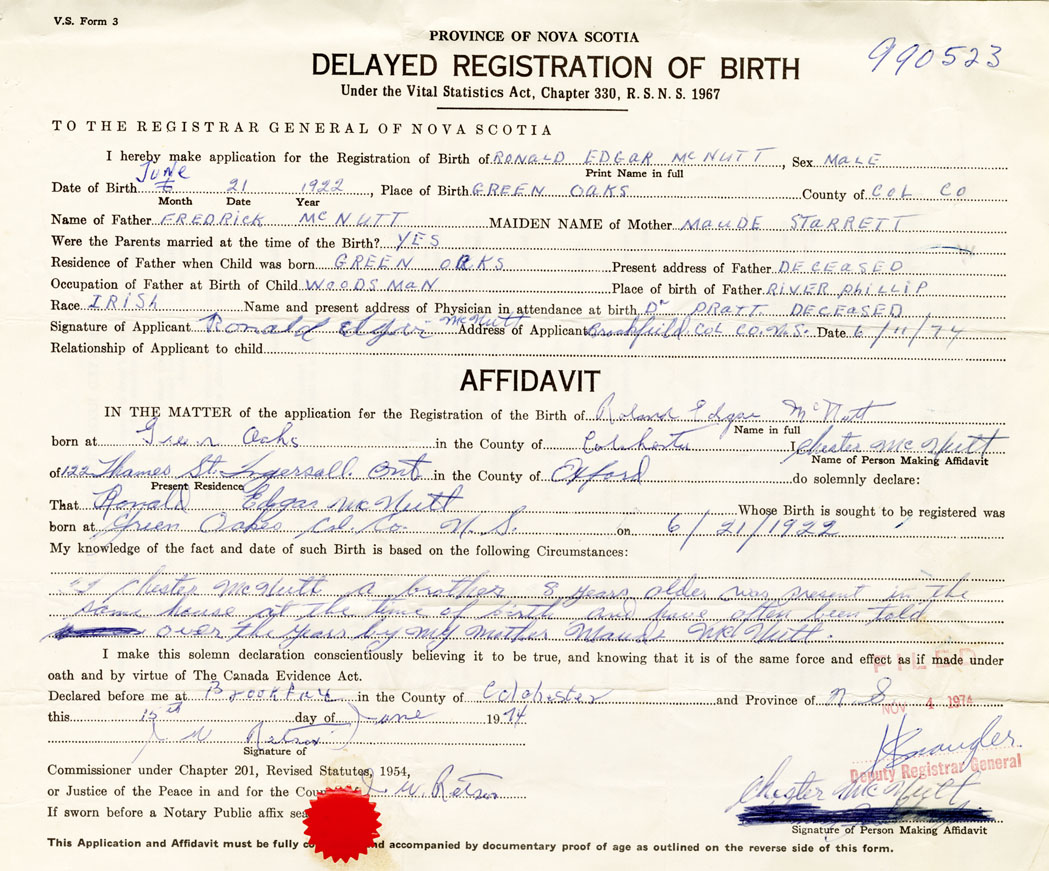 V.S. Form 3
PROVINCE OF NOVA SCOTIA
990523
DELAYED REGISTRATION OF BIRTH
Under the Vital Statistics Act, Chapter 330, R. S. N. S. 1967
TO THE REGISTRAR GENERAL OF NOVA SCOTIA
I hereby make application for the Registration of Birth of RONALD EDGAR McNUTT, Sex MALE
Print Name in full
June
Date of Birth 6 21 1922, Place of Birth GREEN OAKS County of COL CO
Month Date Year
Name of Father FREDRICK McNUTT MAIDEN NAME of Mother MAUDE STARRETT
Were the Parents married at the time of the Birth? YES
Residence of Father when Child was born GREEN OAKS Present address of Father DECEASED
Occupation of Father at Birth of Child WOODSMAN Place of birth of Father RIVER PHILLIP
Race IRISH Name and present address of Physician in attendance at birth Dr PRATT DECEASED
Signature of Applicant Ronald Edgar McNutt Address of Applicant Brookfield COL CO. N.S. Date 6/11/74
Relationship of Applicant to child
AFFIDAVIT
IN THE MATTER of the application for the Registration of the Birth of Roland Edgar McNutt
Name in full
born at Green Oaks in the County of Colchester I Chester McNutt
Name of Person Making Affidavit
of 122 Thames St. Ingersoll Ont in the County of Oxford do solemnly declare:
Present Residence
That Ronald Edgar McNutt Whose Birth is sought to be registered was
born at Green Oakes Col. Co. N.S. on 6/21/1922
My knowledge of the fact and date of such Birth is based on the following Circumstances:
I Chester McNutt a brother 8 years older was present in the
same house at the time of birth and have often been told
over the years by my mother Maude McNutt.
I make this solemn declaration conscientiously believing it to be true, and knowing that it is of the same force and effect as if made under
oath and by virtue of The Canada Evidence Act.
FILED
Declared before me at in the County of Colchester and Province of N S
NOV 4 1974
this 15th day of June 1974
Signature of
Commissioner under Chapter 201, Revised Statutes, 1954,
Deputy Registrar General
or Justice of the Peace in and for the
Chester McNutt
If sworn before a Notary Public affix
Signature of Person Making Affidavit
This Application and Affidavit must be fully accompanied by documentary proof of age as outlined on the reverse side of this form.